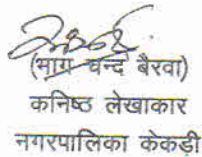 (माग चन्द बैरवा)
कनिष्ठ लेखाकार
नगरपालिका केकड़ी